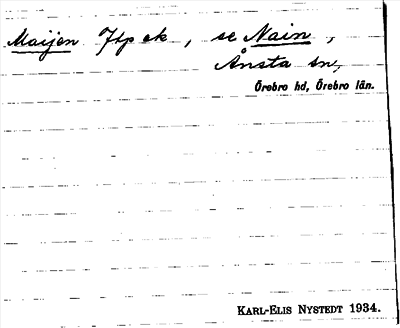 Maijen Jtp ek, se Nain,
Ånsta sn,
Örebro hd, Örebro län.
KARL-ELIS NYSTEDT 1934.